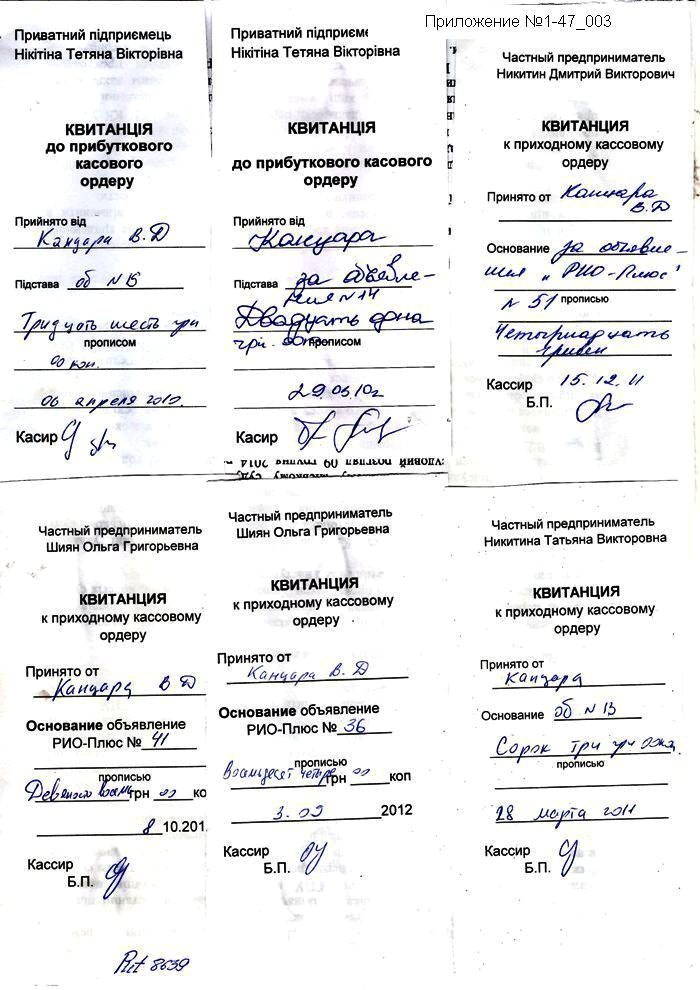 Приложение №1-47_003
Приватний підприємець
Нікітіна Тетяна Вікторівна
КВИТАНЦІЯ
до прибуткового
касового
ордеру
Прийнято від
Канцара В.Д
Підстава об N 15
Тридцать шесть грн
прописом
00 коп.
06 апреля 2010.
Касир
Приватний підприєме
Нікітіна Тетяна Вікторівна
КВИТАНЦІЯ
до прибуткового касового
ордеру
Прийнято від
Канцара
Підстава за объявле-
ние N 14
Двадцать одна
грн. прописом
29.03.10г
Касир
Частный предприниматель
Никитин Дмитрий Викторович
КВИТАНЦИЯ
к приходному кассовому
ордеру
Принято от Канцара
В.Д
Основание за объявле-
ния „РИО-Плюс"
N 51 прописью
Четырнадцать
гривен
Кассир 15.12.11
Б.П.
Частный предприниматель
Шиян Ольга Григорьевна
КВИТАНЦИЯ
к приходному кассовому
ордеру
Принято от
Канцара В Д
Основание объявление
РИО-Плюс № 41
прописью
Девяносто восемь грн 00 ко
8 10.201
Кассир
Б.П.
Частный предприниматель
Шиян Ольга Григорьевна
КВИТАНЦИЯ
к приходному кассовому
ордеру
Принято от
Канцара В. Д
Основание объявление
РИО-Плюс № 36
прописью
Восемьдесят четыре грн 00 коп
3. 09 2012
Кассир
Б.П.
Частный предприниматель
Никитина Татьяна Викторовна
КВИТАНЦИЯ
к приходному кассовому
ордеру
Принято от
Канцара
Основание об N 13
Сорок три грн 00коп.
прописью
28 марта 2011
Кассир
Б.П.
8639